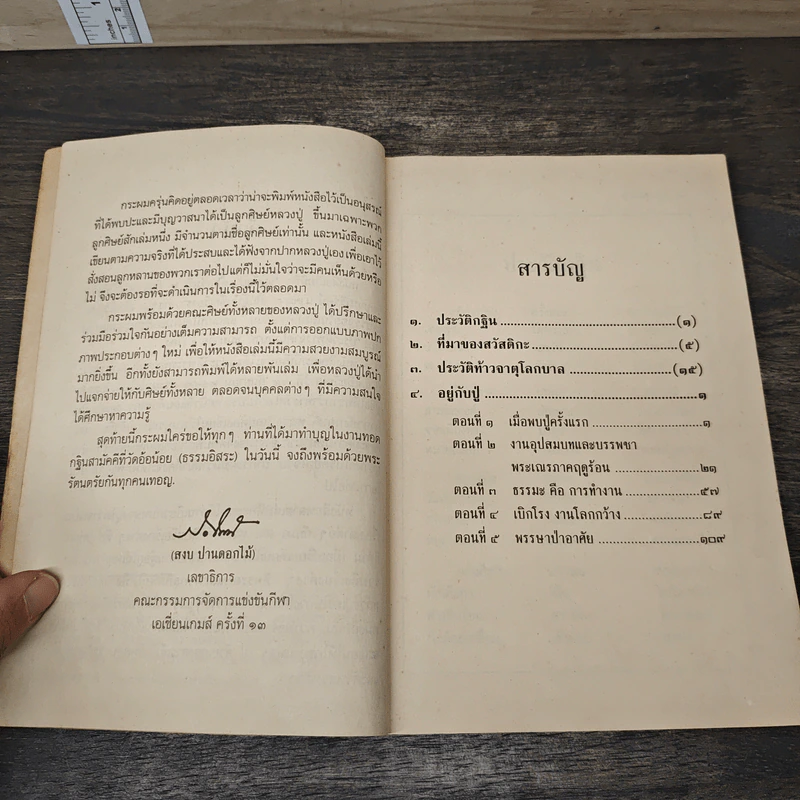 กระผมครุ่นคิดอยู่ตลอดเวลาว่าน่าจะพิมพ์หนังสือไว้เป็นอนุสรณ์
ที่ได้พบปะและมีบุญวาสนาได้เป็นลูกศิษย์หลวงปู่ ขึ้นมาเฉพาะพวก
ลูกศิษย์สักเล่มหนึ่ง มีจำนวนตามชื่อลูกศิษย์เท่านั้น และหนังสือเล่มนี้
เขียนตามความจริงที่ได้ประสบและได้ฟังจากปากหลวงปู่เอง เพื่อเอาไว้
สั่งสอนลูกหลานของพวกเราต่อไปแต่ก็ไม่มั่นใจว่าจะมีคนเห็นด้วยหรือ
ไม่ จึงจะต้องรอที่จะดำเนินการในเรื่องนี้ไว้ตลอดมา
กระผมพร้อมด้วยคณะศิษย์ทั้งหลายของหลวงปู่ ได้ปรึกษาและ
ร่วมมือร่วมใจกันอย่างเต็มความสามารถ ตั้งแต่การออกแบบภาพปก
ภาพประกอบต่างๆ ใหม่ เพื่อให้หนังสือเล่มนี้มีความสวยงามสมบูรณ์
มากยิ่งขึ้น อีกทั้งยังสามารถพิมพ์ได้หลายพันเล่ม เพื่อหลวงปู่ได้นำ
ไปแจกจ่ายให้กับศิษย์ทั้งหลาย ตลอดจนบุคคลต่างๆ ที่มีความสนใจ
ได้ศึกษาหาความรู้
สุดท้ายนี้กระผมใคร่ขอให้ทุกๆ ท่านที่ได้มาทำบุญในงานทอด
กฐินสามัคคีที่วัดอ้อน้อย (ธรรมอิสระ) ในวันนี้ จงถึงพร้อมด้วยพระ
รัตนตรัยกันทุกคนเทอญ.
(สงบ ปานดอกไม้)
เลขาธิการ
คณะกรรมการจัดการแข่งขันกีฬา
เอเชี่ยนเกมส์ ครั้งที่ ๑๓
สารบัญ
๑. ประวัติกฐิน ................................................(๑)
๒. ที่มาของสวัสดิกะ ........................................(๕)
๓. ประวัติท้าวจาตุโลกบาล ................................(๑๕)
๔. อยู่กับปู่ ......................................................๑
ตอนที่ ๑ เมื่อพบปู่ครั้งแรก ..............................๑
ตอนที่ ๒ งานอุปสมบทและบรรพชา
พระเณรภาคฤดูร้อน ......................๒๑
ตอนที่ ๓ ธรรมะ คือ การทำงาน .....................๕๗
ตอนที่ ๔ เบิกโรง งานโลกกว้าง ......................๘๙
ตอนที่ ๕ พรรษาป่าอาศัย ..............................๑๐๙
inches
1
1
2